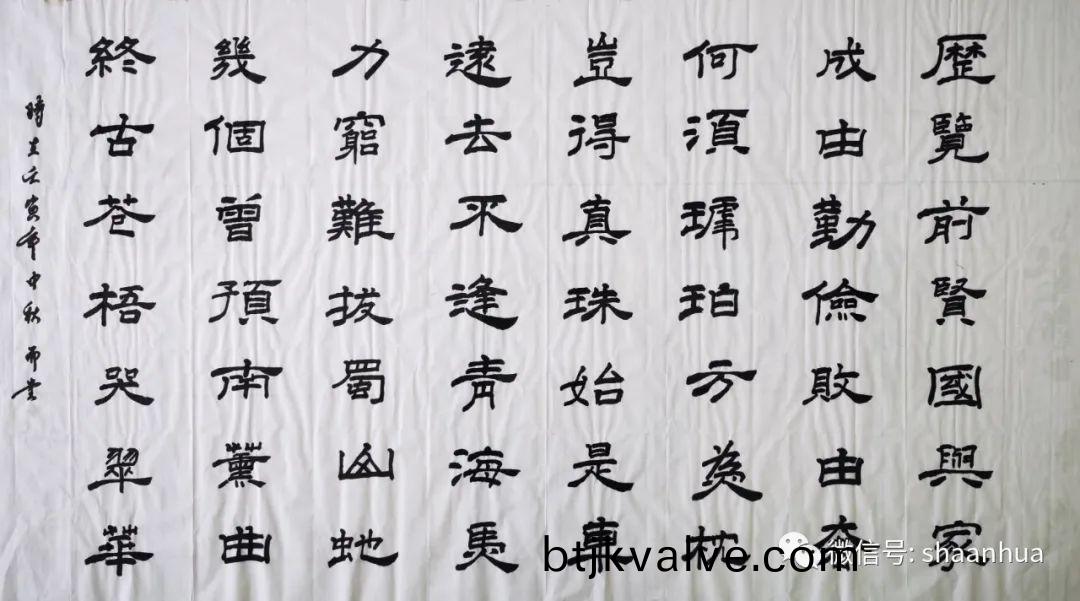 歷覽前賢國與家
成由勤儉敗由
何湏琥珀方為枕
豈得真珠始是車
逮去不逢青海馬
力窮難拔蜀山虵
幾個曾預南薰曲
終古蒼梧哭翠華
時在壬寅年中秋
btjkvalve.com
微信号: shaanhua